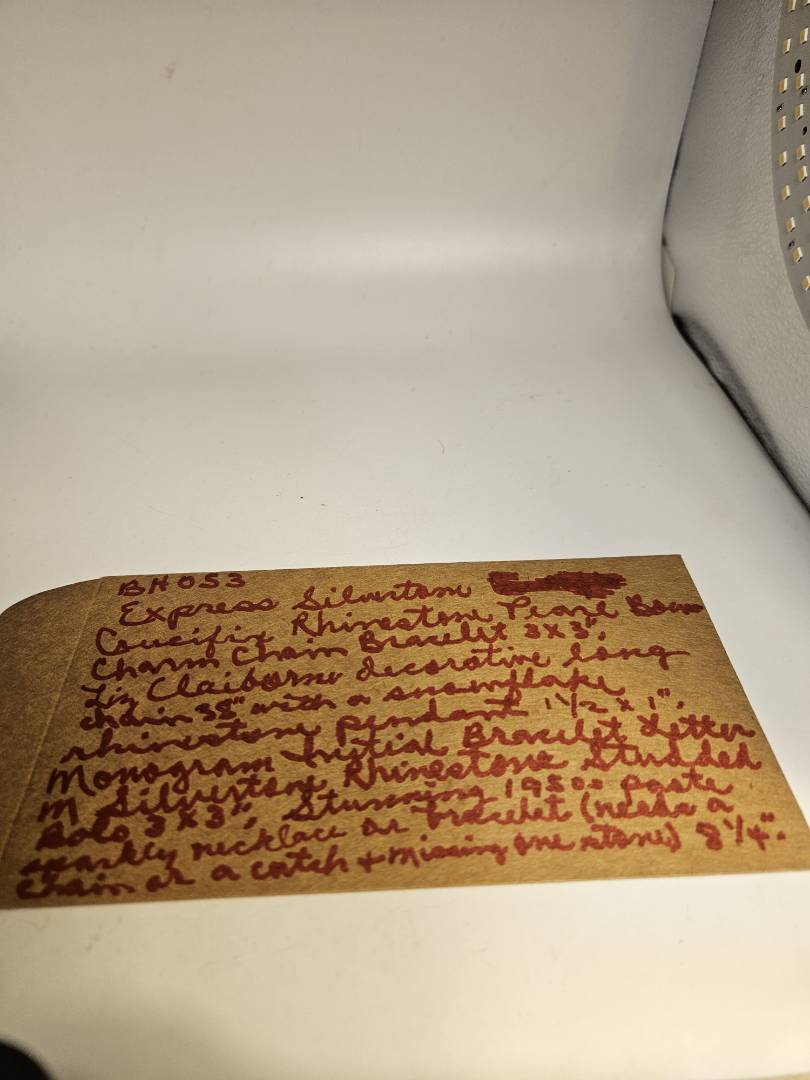 BH053
Express Silvertone
Crucifix Rhinestone Pearl
Charm Chain Bracelet 3x3",
Liz Claiborne decorative long
chain 38" with a snowflake
rhinestone pendant 1 1/2 x 1",
Monogram Initial Bracelet Letter
M Silvertone Rhinestone Studded
3x3", Stunning 1950s paste
sparkly necklace or bracelet (needs a
chain or a catch + missing one stone) 8 1/4".